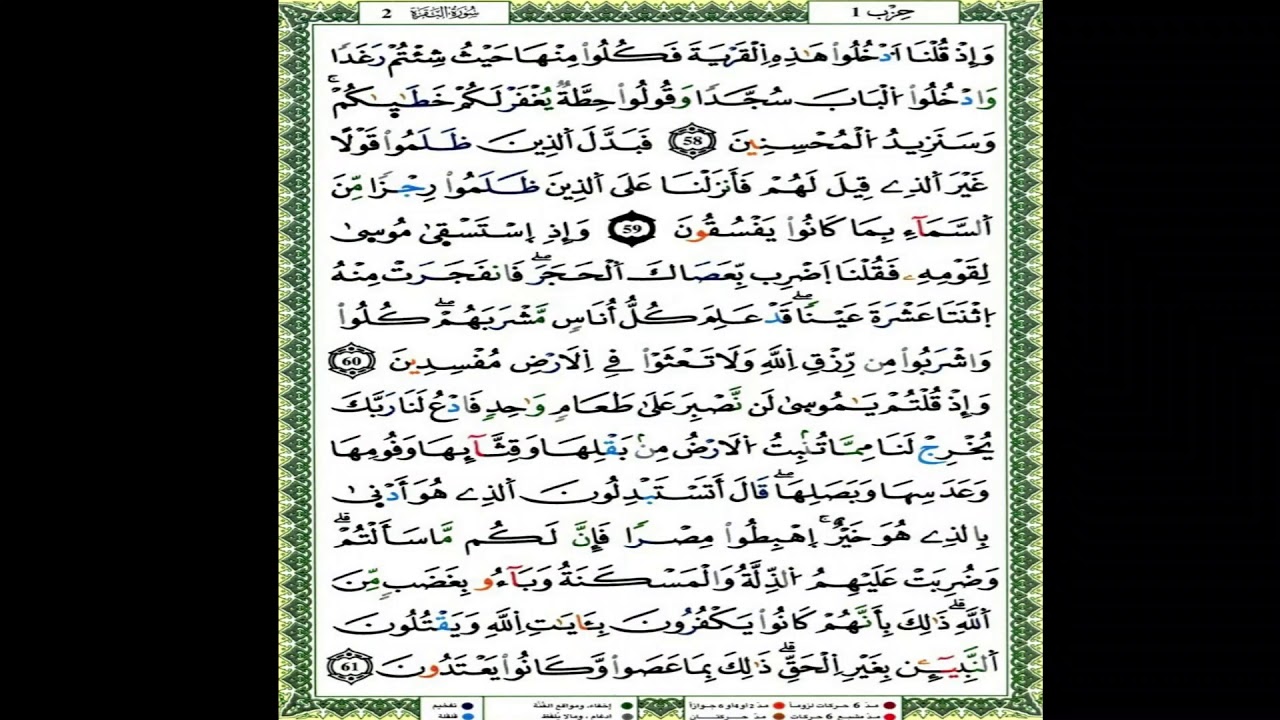 حِزْب 1
سُورَةُ البَقَرَةِ 2
وَإِذْ قُلْنَا اَدْخُلُواْ هَٰذِهِ اِلْقَرْيَةَ فَكُلُواْ مِنْهَا حَيْثُ شِئْتُمْ رَغَدًا
وَادْخُلُواْ اُلْبَابَ سُجَّدًا وَقُولُواْ حِطَّةٌ يُغْفَرْ لَكُمْ خَطَٰيَٰكُمْ
وَسَنَزِيدُ اُلْمُحْسِنِينَ 58 فَبَدَّلَ اَلذِينَ ظَلَمُواْ قَوْلًا
غَيْرَ اَلذِے قِيلَ لَهُمْ فَأَنزَلْنَا عَلَى اَلذِينَ ظَلَمُواْ رِجْزًا مِّنَ
اَلسَّمَآءِ بِمَا كَانُواْ يَفْسُقُونَ 59 وَإِذِ اِسْتَسْقَىٰ مُوسَىٰ
لِقَوْمِهِۦ فَقُلْنَا اَضْرِب بِّعَصَاكَ اَلْحَجَرَۖ فَانفَجَرَتْ مِنْهُ
اُثْنَتَا عَشْرَةَ عَيْنًاۖ قَدْ عَلِمَ كُلُّ أُنَاسٍ مَّشْرَبَهُمْۖ كُلُواْ
وَاشْرَبُواْ مِن رِّزْقِ اِللَّهِ وَلَا تَعْثَوْاْ فِے اِلَارْضِ مُفْسِدِينَ 60
وَإِذْ قُلْتُمْ يَٰمُوسَىٰ لَن نَّصْبِرَ عَلَىٰ طَعَامٍ وَٰحِدٍ فَادْعُ لَنَا رَبَّكَ
يُخْرِجْ لَنَا مِمَّا تُنۢبِتُ اُلَارْضُ مِنۢ بَقْلِهَا وَقِثَّآئِهَا وَفُومِهَا
وَعَدَسِهَا وَبَصَلِهَاۖ قَالَ أَتَسْتَبْدِلُونَ اَلذِے هُوَ أَدْنَىٰ
بِالذِے هُوَ خَيْرٌۚ اِهْبِطُواْ مِصْرًا فَإِنَّ لَكُم مَّا سَأَلْتُمْۗ
وَضُرِبَتْ عَلَيْهِمُ اُلذِّلَّةُ وَالْمَسْكَنَةُ وَبَآءُو بِغَضَبٍ مِّنَ
اَللَّهِۗ ذَٰلِكَ بِأَنَّهُمْ كَانُواْ يَكْفُرُونَ بِـَٔايَٰتِ اِللَّهِ وَيَقْتُلُونَ
اَلنَّبِيٓـِٕينَ بِغَيْرِ اِلْحَقِّۗ ذَٰلِكَ بِمَا عَصَواْ وَّكَانُواْ يَعْتَدُونَ 61
مدّ 6 حركات لزوماً مدّ 2 أو 4 أو 6 جوازاً إخفاء، ومواقع الغُنَّة تفخيم
مدّ مشبع 6 حركات مدّ حركتان إدغام، وما لا يُلفظ قلقلة